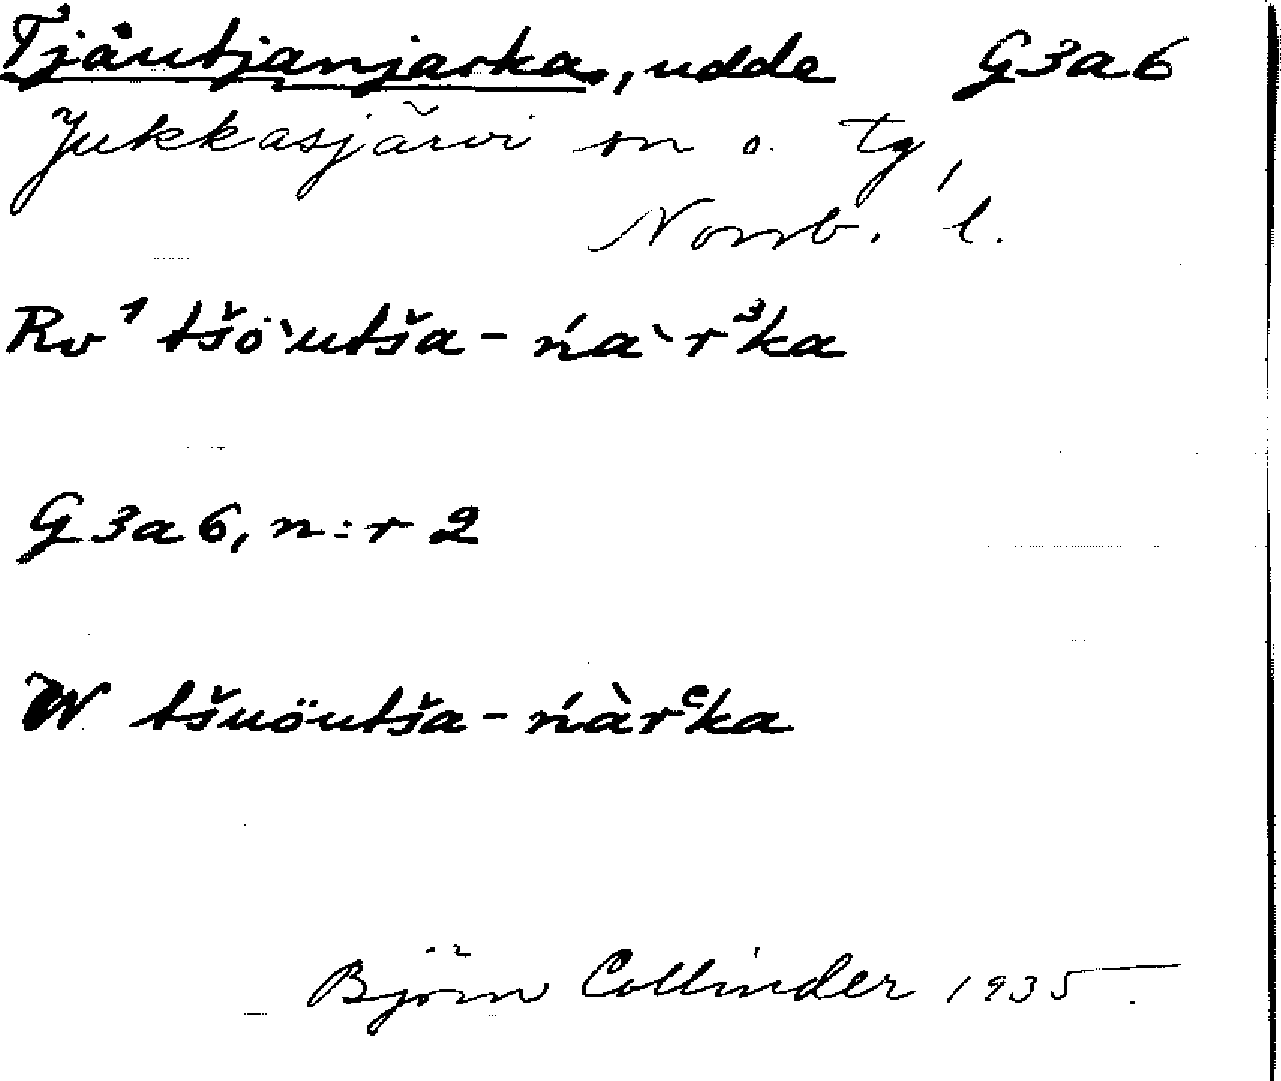 Tjåutjanjarka, udde G3a6
Jukkasjärvi sn o. tg,
Norrb. l.
Rv¹ tšȯ̀utša-ńàr³ka
G3a6, n:r 2
W tšuöutša-ńàrᵉka
Björn Collinder 1935.